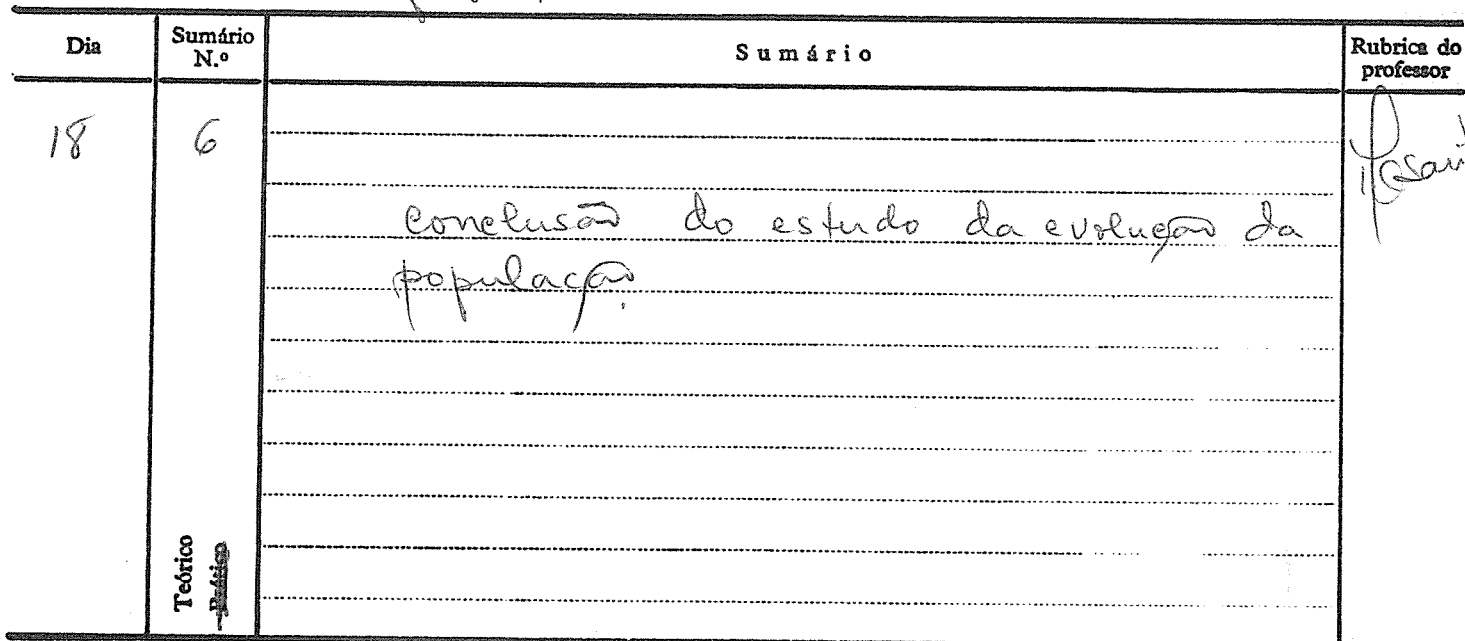 Dia
Sumário N.º
Sumário
Rubrica do professor
18
6
conclusão do estudo da evolução da
população.
Teórico
Prático